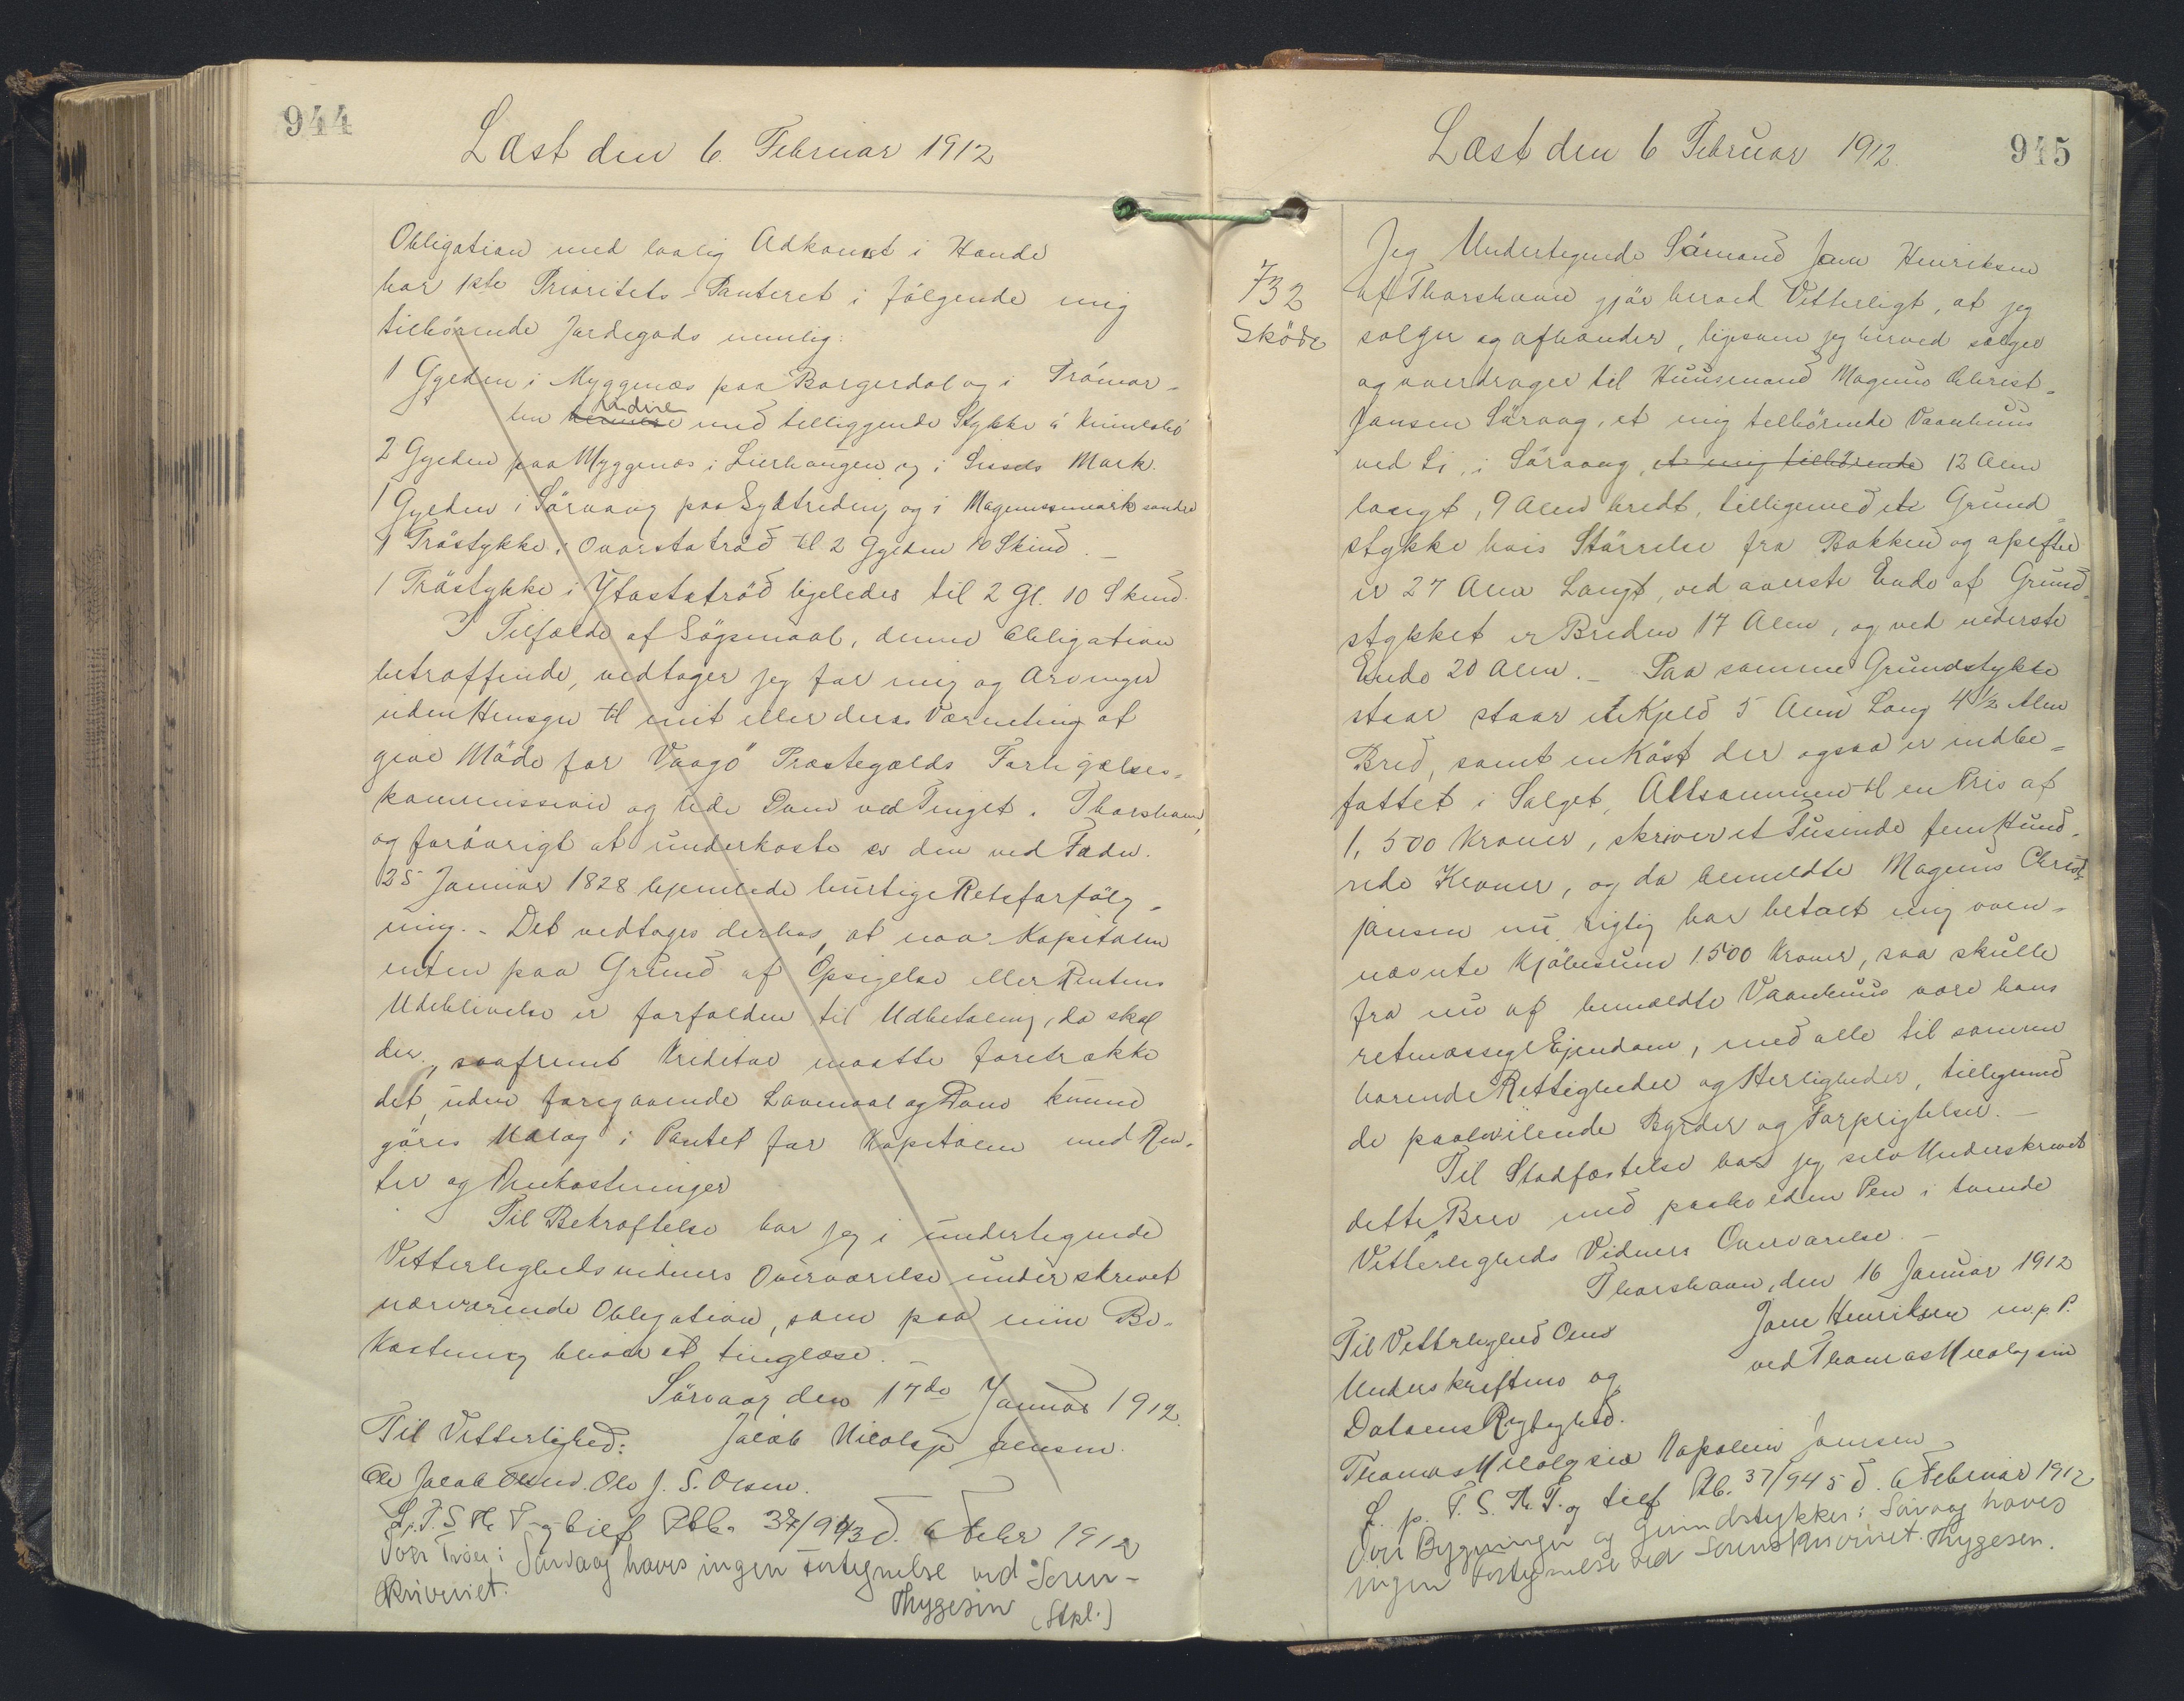 944
Læst den 6. Februar 1912
Obligation med lovlig Adkomst i Hænde
har 1ste Prioritets-Panteret i følgende mig
tilhørende Jordegods nemlig:
1 Gylden i Myggenæs paa Borgerdal og i Trömar-
ken nedre med tilliggende Stykke á
2 Gylden paa Myggenæs i Lierhaugen og i Sissels Mark.
1 Gylden i Sörvaag paa Sydtreding og i Magnussmark søndre
1 Tröstykke i Ovarstatröd til 2 Gylden 10 Skind. -
1 Tröstykke i Ytastatröd ligeledes til 2 Gl. 10 Skind.
I Tilfælde af Sögsmaal, denne Obligation
betræffende, vedtager jeg for mig og Arvinger
uden Hensyn til mit eller deres Værneting at
give Möde for Vaagö Præstegælds Forligelses-
kommission og lide Dom ved Tinget i Thorshavn,
og forövrigt at underkaste os den ved Frdn.
25 Januar 1828 hjemlede hurtige Retsforfölg-
ning. - Det vedtages derhos, at naar Kapitalen
enten paa Grund af Opsigelse eller Rentens
Udeblivelse er forfalden til Udbetaling, da skal
der, saafremt Kreditor maatte foretrække
det, uden foregaaende Lovmaal og Dom kunne
göres Udlæg i Pantet for Kapitalen med Ren-
ter og Omkostninger
Til Bekræftelse har jeg i undertegnede
Vitterlighedsvidners Overværelse underskrevet
nærværende Obligation, som paa min Be-
kostning bliver at tinglæse. -
Sörvaag den 17de Januar 1912.
Til Vitterlighed: Jacob Nicolaj Jensen.
Ole Jacob Olsen. Ole J. S. Olsen.
L. p. T. S. Th. T. og tilf Ptb. 37/943 d. 6 Febr 1912
Over Tröer i Sørvaag haves ingen Fortegnelse ved Soren-
skriveriet.
Thygesen (Stpl.)
Læst den 6 Februar 1912.
945
732
Sköde
Jeg Undertegnede Sömand Jens Henriksen
af Thorshavn gjör herved Vitterligt, at jeg
sælger og afhænder, ligesom jeg herved sælger
og overdrager til Huusmand Magnus Christ-
Jansen Sörvaag, et mig tilhørende Vaanhuus
ved Li, i Sörvaag, et mig tilhörende 12 Alen
langt, 9 Alen bredt, tilligemed et Grund-
stykke hvis Störrelse fra Bakken og
er 27 Alen Langt, ved överste Ende af Grund-
stykket er Breden 17 Alen, og ved nederste
Ende 20 Alen. - Paa samme Grundstykke
staar staar et Kjeld 5 Alen Lang 4 1/2 Alen
Bred, samt en Köst der ogsaa er indbe-
fattet i Salget, Altsammen til en Pris af
1,500 Kroner, skriver et Tusinde fem Hund-
rede Kroner, og da bemeldte Magnus Christ-
jansen nu rigtig har betalt mig oven-
nævnte Kjöbesum 1500 Kroner, saa skulle
fra nu af bemældte Vaanhuus være hans
retmæssige Ejendom, med alle til samme
hørende Rettigheder og Herligheder, tilligemed
de paahvilende Byrder og Forpligtelser. -
Til Stadfæstelse har jeg selv Underskrevet
dette Brev med paaholden Pen i tvende
Vitterligheds Vidners Overværelse. -
Thorshavn, den 16 Januar 1912
Til Vitterlighed Om
Jens Henriksen m. p. P.
Underskriftens og
ved Thomas Nicolaysen
Datoens Rigtighed.
Thomas Nicolaysen Napoleon Jensen
L. p. T. S. Th. T. og tilf Ptb. 37/945 d. 6 Februar 1912
Over Bygninger og Grundstykker i Sørvaag haves
ingen Fortegnelse ved Sorenskriveriet. Thygesen.